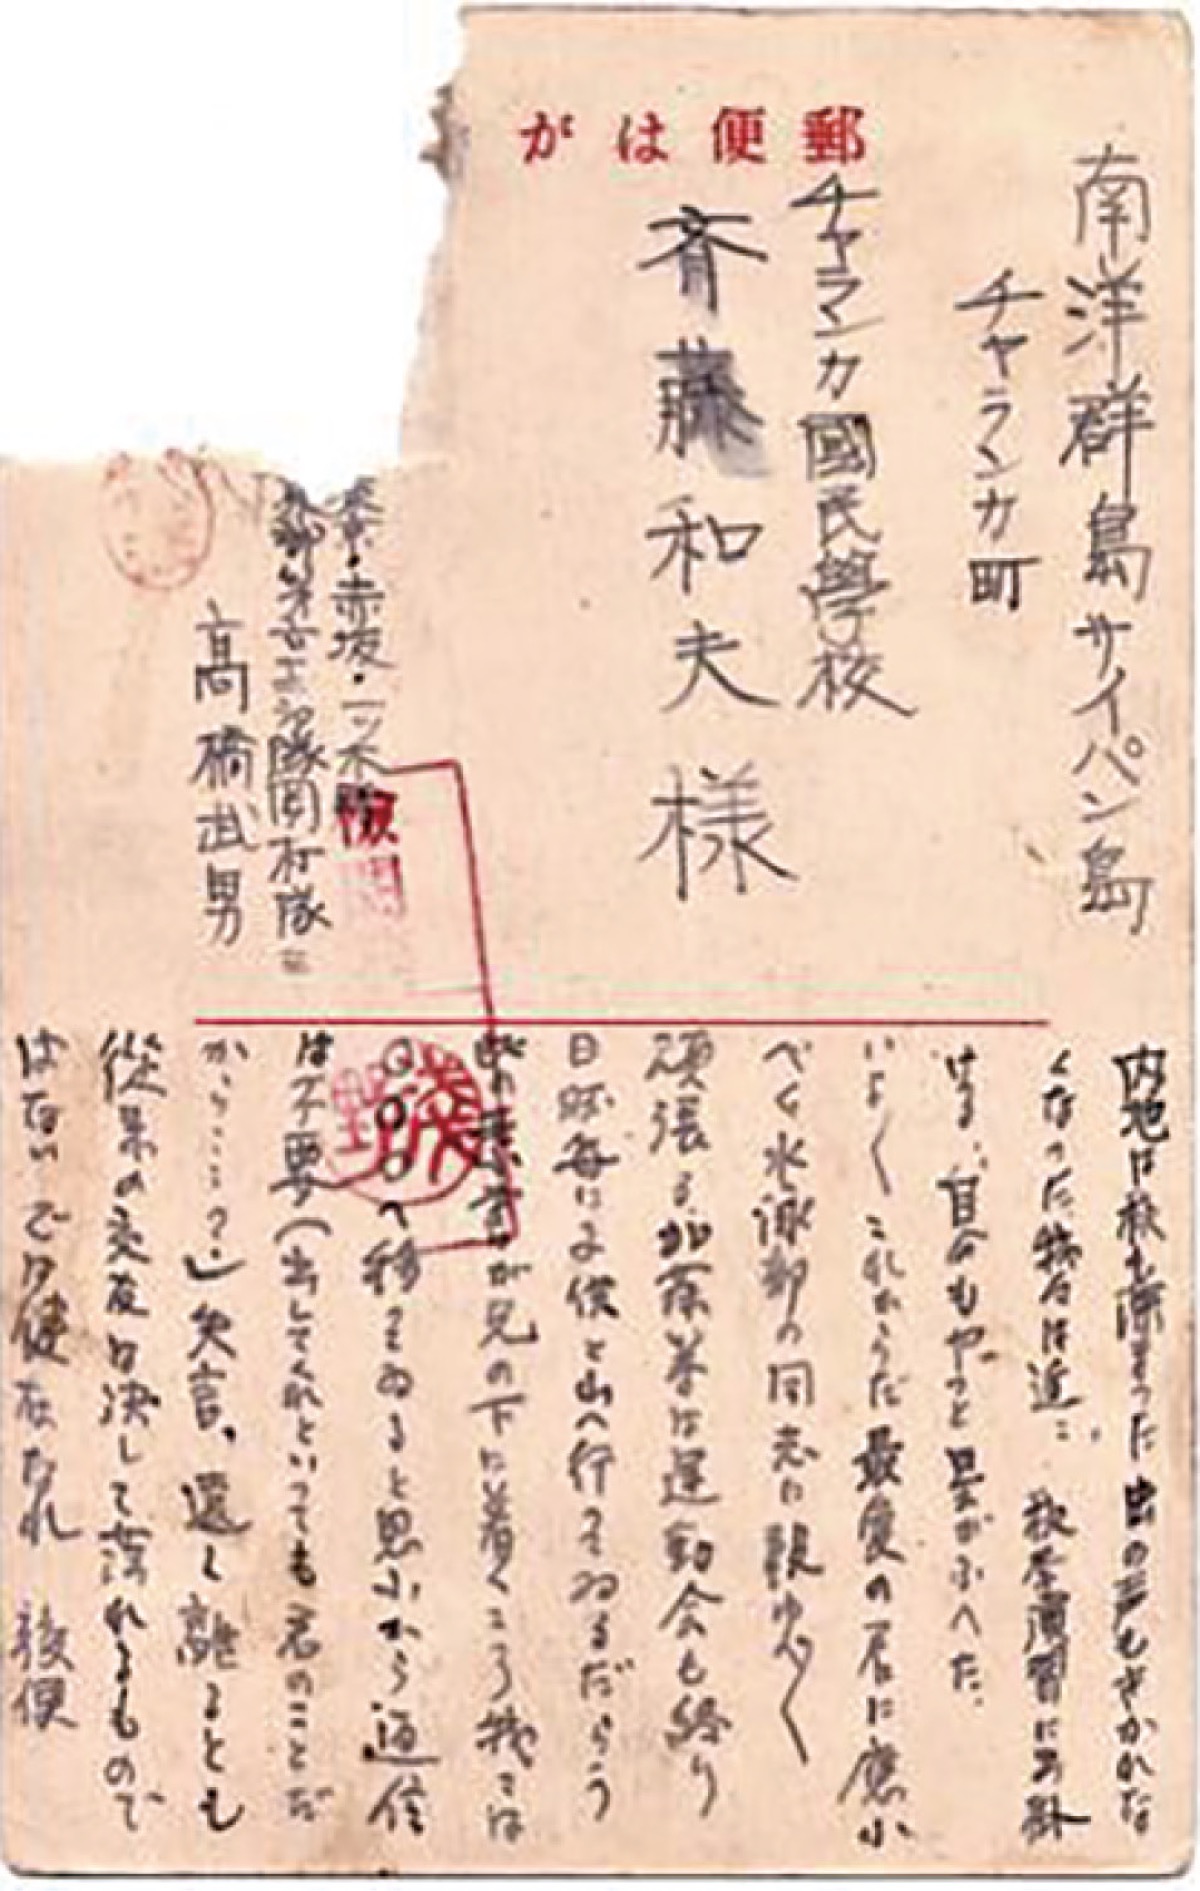 郵便はが
南洋群島サイパン島
チャランカ町
チャランカ國民學校
斉藤和夫様
東京・赤坂・一ツ木
隊岡村隊
高橋武男
検閲
内地は秋も深まった虫の声もきかれな
くなった我々は近に 秋季演習に出掛
ける、自分もやっと星がふへた、
いよ〱これからだ最度の君に応ふ
べく水泳部の同志に鞭
頑張る、加藤 は運動会も終り
日 毎によ と山へ行ってゐるだらう
この が兄の下に着くころ我々は
〇〇〇へ移ってゐると思ふから返信
は不要(出してくれといっても君のことだ
から……?)失言、遠く離るとも
従来の交友は決して薄れるもので
はないでは健在なれ 後便